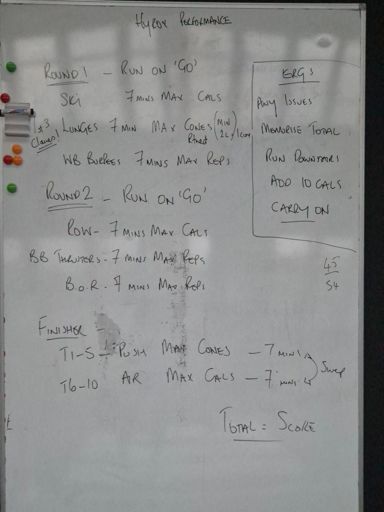 HYROX PERFORMANCE
ROUND 1 - RUN ON 'GO'
SKI 7 MINS MAX CALS
LUNGES 7 MIN MAX CONES
WB BURPEES 7 MINS MAX REPS
ROUND 2 - RUN ON 'GO'
ROW - 7 MINS MAX CALS
BB THRUSTERS - 7 MINS MAX REPS
B.O.R. 7 MINS MAX REPS
ERGS
ANY ISSUES
MEMORISE TOTAL
RUN DOWNSTAIRS
ADD 10 CALS
CARRY ON
45
54
FINISHER -
T1-5 - PUSH MAX CONES - 7 MINS
T6-10 AIR MAX CALS - 7 MINS
SWAP
TOTAL = SCORE